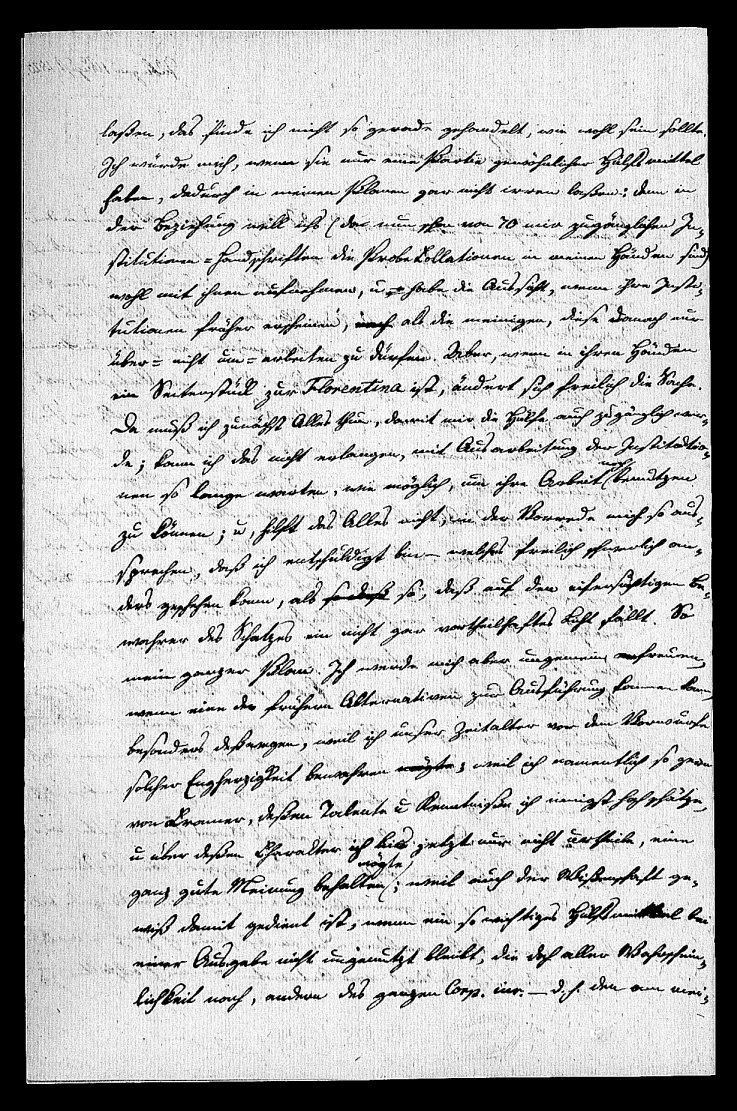 laßen, das finde ich nicht so gerade gehandelt, wie wohl sein sollte.
Ich würde mich, wenn sie nur eine Partie gewöhnlicher Hülfsmittel
haben, dadurch in meinen Planen gar nicht irren laßen: denn in
der Beziehung will ichs (da nun schon von 70 mir zugänglichen In-
stitutionen-Handschriften die Probe Collationen in meinen Händen sind)
wohl mit ihnen aufnehmen, u habe die Aussicht, wenn ihre Insti-
tutionen früher erscheinen, als die meinigen, diese danach nur
über- nicht um-arbeiten zu dürfen. Aber, wenn in ihren Händen
ein Seitenstück zur Florentina ist, ändert sich freilich die Sache.
Da muß ich zunächst Alles thun, damit mir die Hülfe auch zugänglich wer-
de; kann ich das nicht erlangen, mit Ausarbeitung der Institutio-
nen so lange warten, wie möglich, um ihre Arbeit noch benutzen
zu können; u, hilft das Alles nicht, in der Vorrede mich so aus-
sprechen, daß ich entschuldigt bin – welches freilich schwerlich an-
ders geschehen kann, als so, daß auf den eifersüchtigen Be-
wahrer des Schatzes ein nicht gar vortheilhaftes Licht fällt. So
mein ganzer Plan. Ich werde mich aber ungemein freuen,
wenn eine der frühern Alternativen zur Ausführung kommen kann,
besonders deßwegen, weil ich unser Zeitalter vor dem Vorwurfe
solcher Engherzigkeit bewahren mögte; weil ich namentlich so gern
von Cramer, deßen Talente u Kenntniße ich innigst hochschätze,
u über deßen Charakter ich bis jetzt nur nicht urtheile, eine
ganz gute Meinung behalten mögte; weil auch der Wißenschaft ge-
wiß damit gedient ist, wenn ein so wichtiges Hülfsmittel bei
einer Ausgabe nicht ungenutzt bleibt, die doch aller Wahrschein-
lichkeit nach, andern des ganzen Corp. iur. – d. h. den am mei-